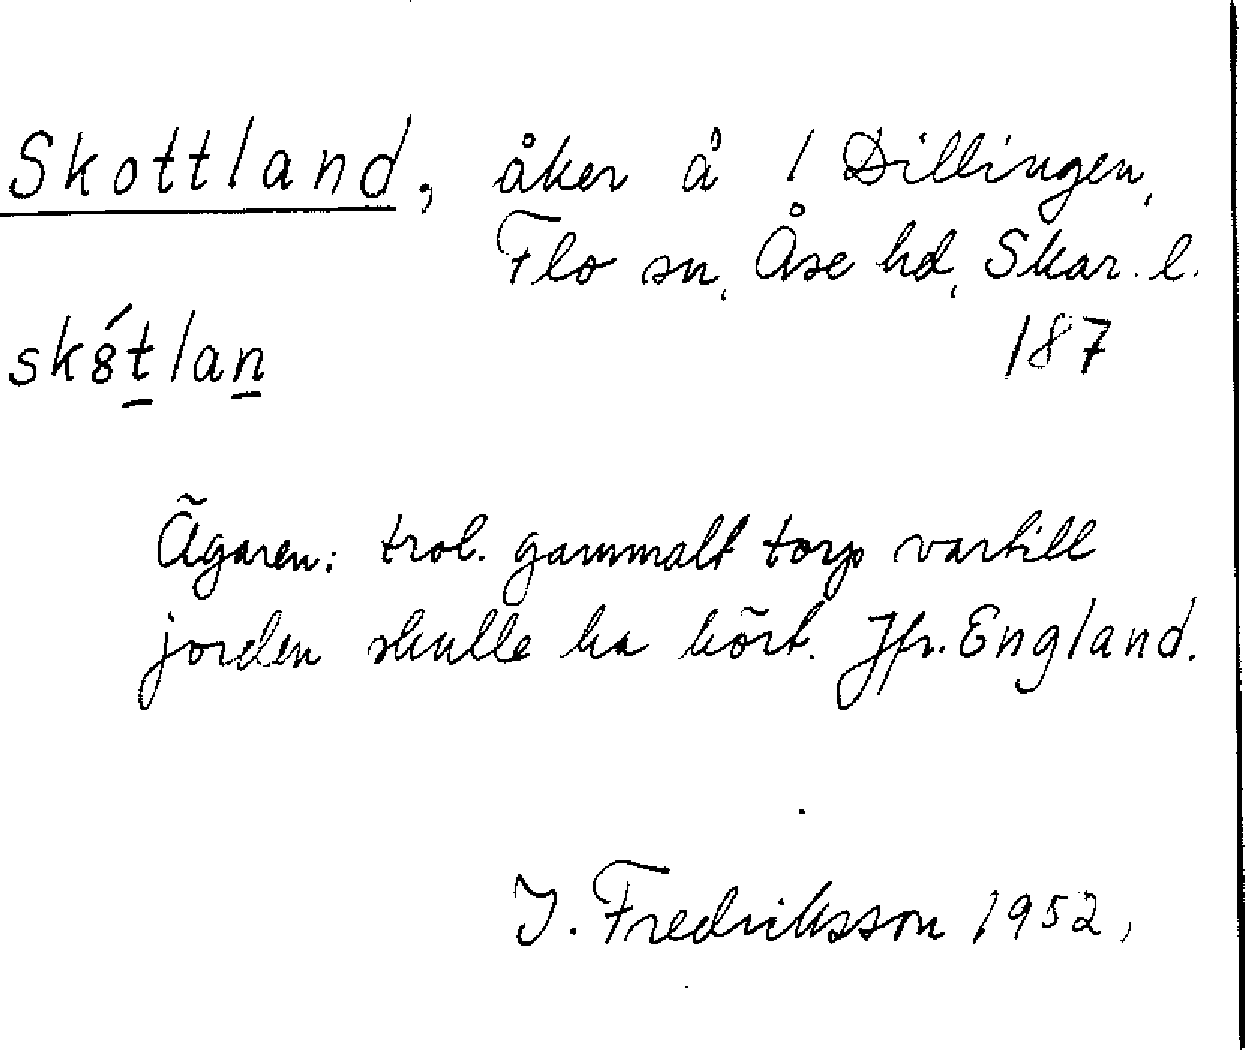 Skottland, åker å 1 Dillingen,
Flo sn, Åse hd, Skar. l.
sk8́t̲lan̲ 187
Ägaren: trol. gammalt torp vartill
jorden skulle ha hört. Jfr. England.
I. Fredriksson 1952,